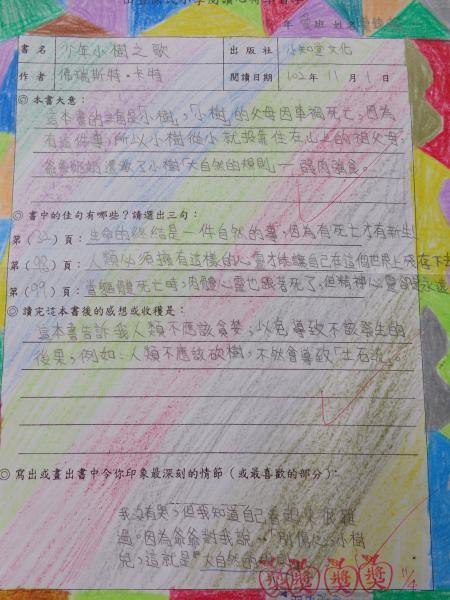 書名 少年小樹之歌 出版社 小知堂文化
作者 佛瑞斯特·卡特 閱讀日期 102年11月1日
◎ 本書大意：
這本書的主角是「小樹」，「小樹」的父母因車禍死亡，因為
有這件事，所以小樹從小就投靠住在山上的祖父母，
爺爺奶奶還教了小樹「大自然的規則」— 弱肉強食。
◎ 書中的佳句有哪些？請選出三句：
第（32）頁：生命的終結是一件自然的事，因為有死亡才有新生！
第（98）頁：人類必須擁有這樣的心靈才能讓自己在這個世界上殘存下去
第（99）頁：當軀體死亡時，肉體心靈也跟著死了，但精神心靈卻永遠
◎ 讀完這本書後的感想或收穫是：
這本書告訴我人類不應該貪婪，以免導致不該發生的
後果，例如：人類不應該砍樹，不然會導致「土石流」。
◎ 寫出或畫出書中令你印象最深刻的情節（或最喜歡的部分）：
我沒有哭，但我知道自己看起來很難
過。因為爺爺對我說：「別傷心，小樹
兒，這就是『大自然的規則
獎 獎 獎
11/4